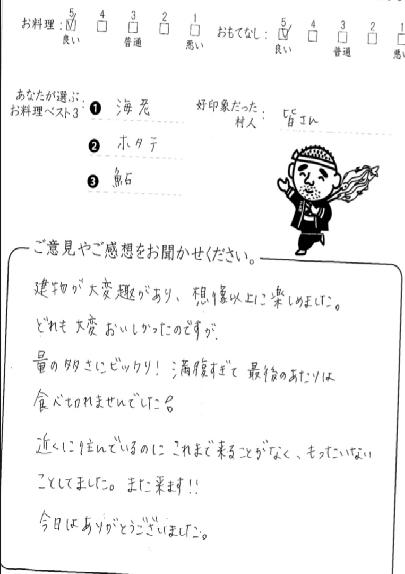 お料理: 5 4 3 2 1 おもてなし: 5 4 3 2 1
良い 普通 悪い 良い 普通 悪い
あなたが選ぶ お料理ベスト3: ❶ 海老 好印象だった村人: 皆さん
❷ ホタテ
❸ 鮎
ご意見やご感想をお聞かせください。
建物が大変趣があり、想像以上に楽しめました。
どれも大変おいしかったのですが、
量の多さにビックリ! 満腹すぎて最後のあたりは
食べ切れませんでした
近くに住んでいるのにこれまで来ることがなく、もったいない
ことしてました。また来ます!!
今日はありがとうございました。